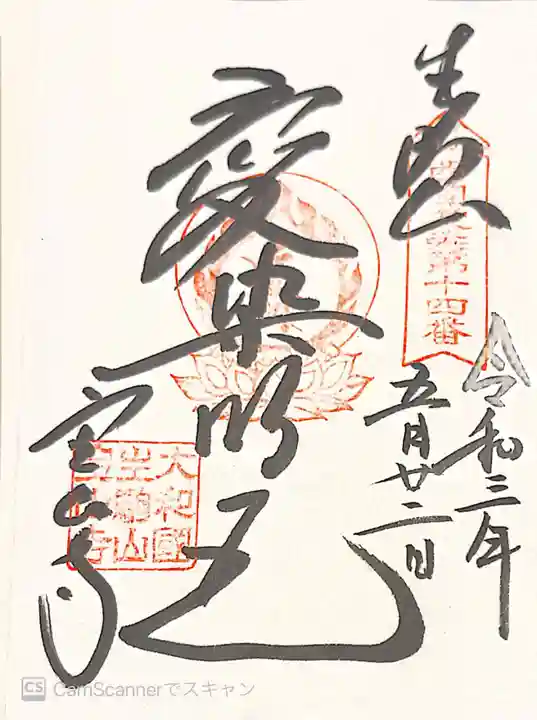 奉拝
第十四番
令和三年
五月廿二日
愛染明王
宝山寺
大和國
生駒山
宝山寺
CS CamScannerでスキャン